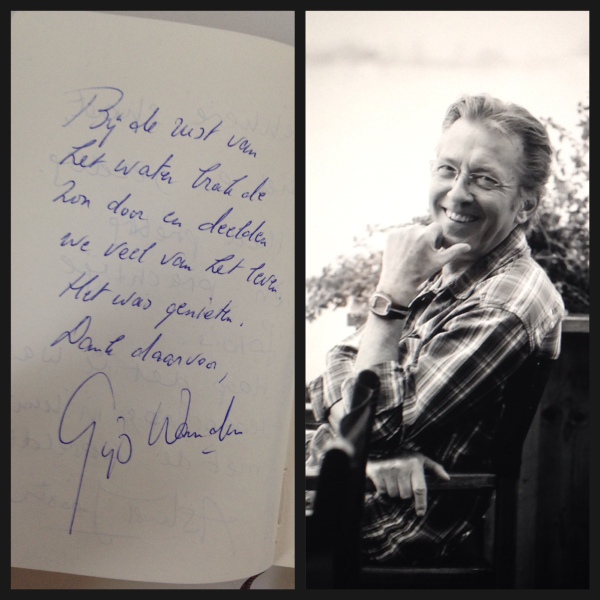 Bij de rust van
het water brak de
zon door en deelden
we veel van het leven.
Het was genieten.
Dank daarvoor,
Gijs